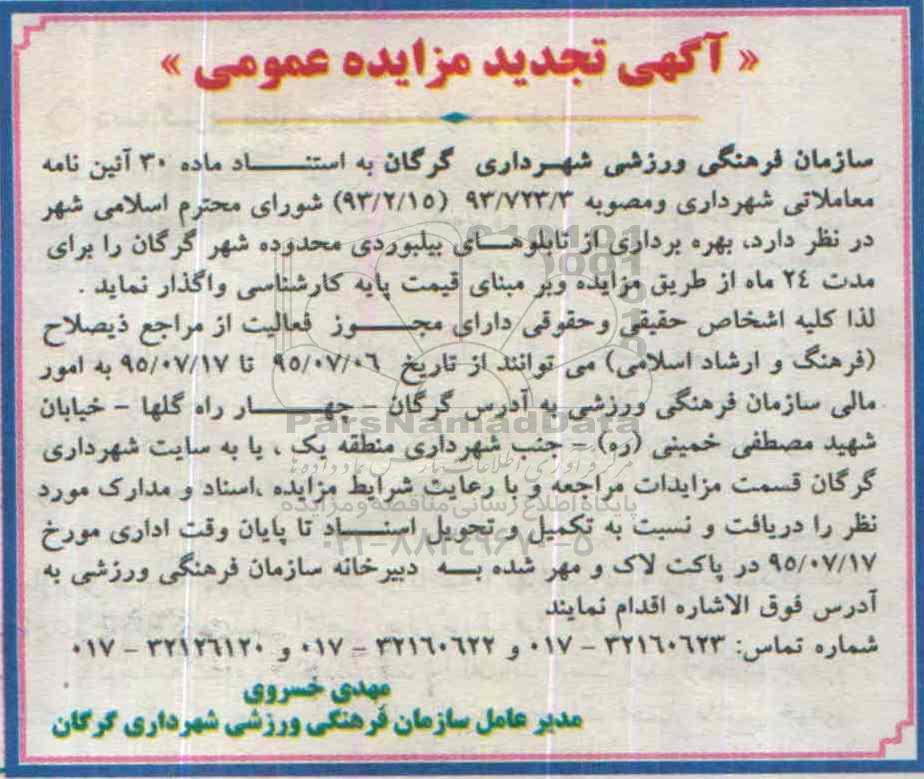 « آگهی تجدید مزایده عمومی »
سازمان فرهنگی ورزشی شهرداری گرگان به استناد ماده ۳۰ آئین نامه
معاملاتی شهرداری ومصوبه ۹۳/۷۲۳/۳ (۹۳/۲/۱۵) شورای محترم اسلامی شهر
در نظر دارد، بهره برداری از تابلوهای بیلبوردی محدوده شهر گرگان را برای
مدت ۲٤ ماه از طریق مزایده وبر مبنای قیمت پایه کارشناسی واگذار نماید .
لذا کلیه اشخاص حقیقی وحقوقی دارای مجوز فعالیت از مراجع ذیصلاح
(فرهنگ و ارشاد اسلامی) می توانند از تاریخ ۹۵/۰۷/۰۶ تا ۹۵/۰۷/۱۷ به امور
مالی سازمان فرهنگی ورزشی به آدرس گرگان – چهار راه گلها – خیابان
شهید مصطفی خمینی (ره) – جنب شهرداری منطقه یک ، یا به سایت شهرداری
گرگان قسمت مزایدات مراجعه و با رعایت شرایط مزایده ،اسناد و مدارک مورد
نظر را دریافت و نسبت به تکمیل و تحویل اسناد تا پایان وقت اداری مورخ
۹۵/۰۷/۱۷ در پاکت لاک و مهر شده به دبیرخانه سازمان فرهنگی ورزشی به
آدرس فوق الاشاره اقدام نمایند
شماره تماس: ۳۲۱۶۰۶۲۳ – ۰۱۷ و ۳۲۱۶۰۶۲۲ – ۰۱۷ و ۳۲۱۲۶۱۲۰ – ۰۱۷
مهدی خسروی
مدیر عامل سازمان فرهنگی ورزشی شهرداری گرگان
ParsNamadData
مرکز فرآوری اطلاعات پارس نماد داده ها
پایگاه اطلاع رسانی مناقصه و مزایده